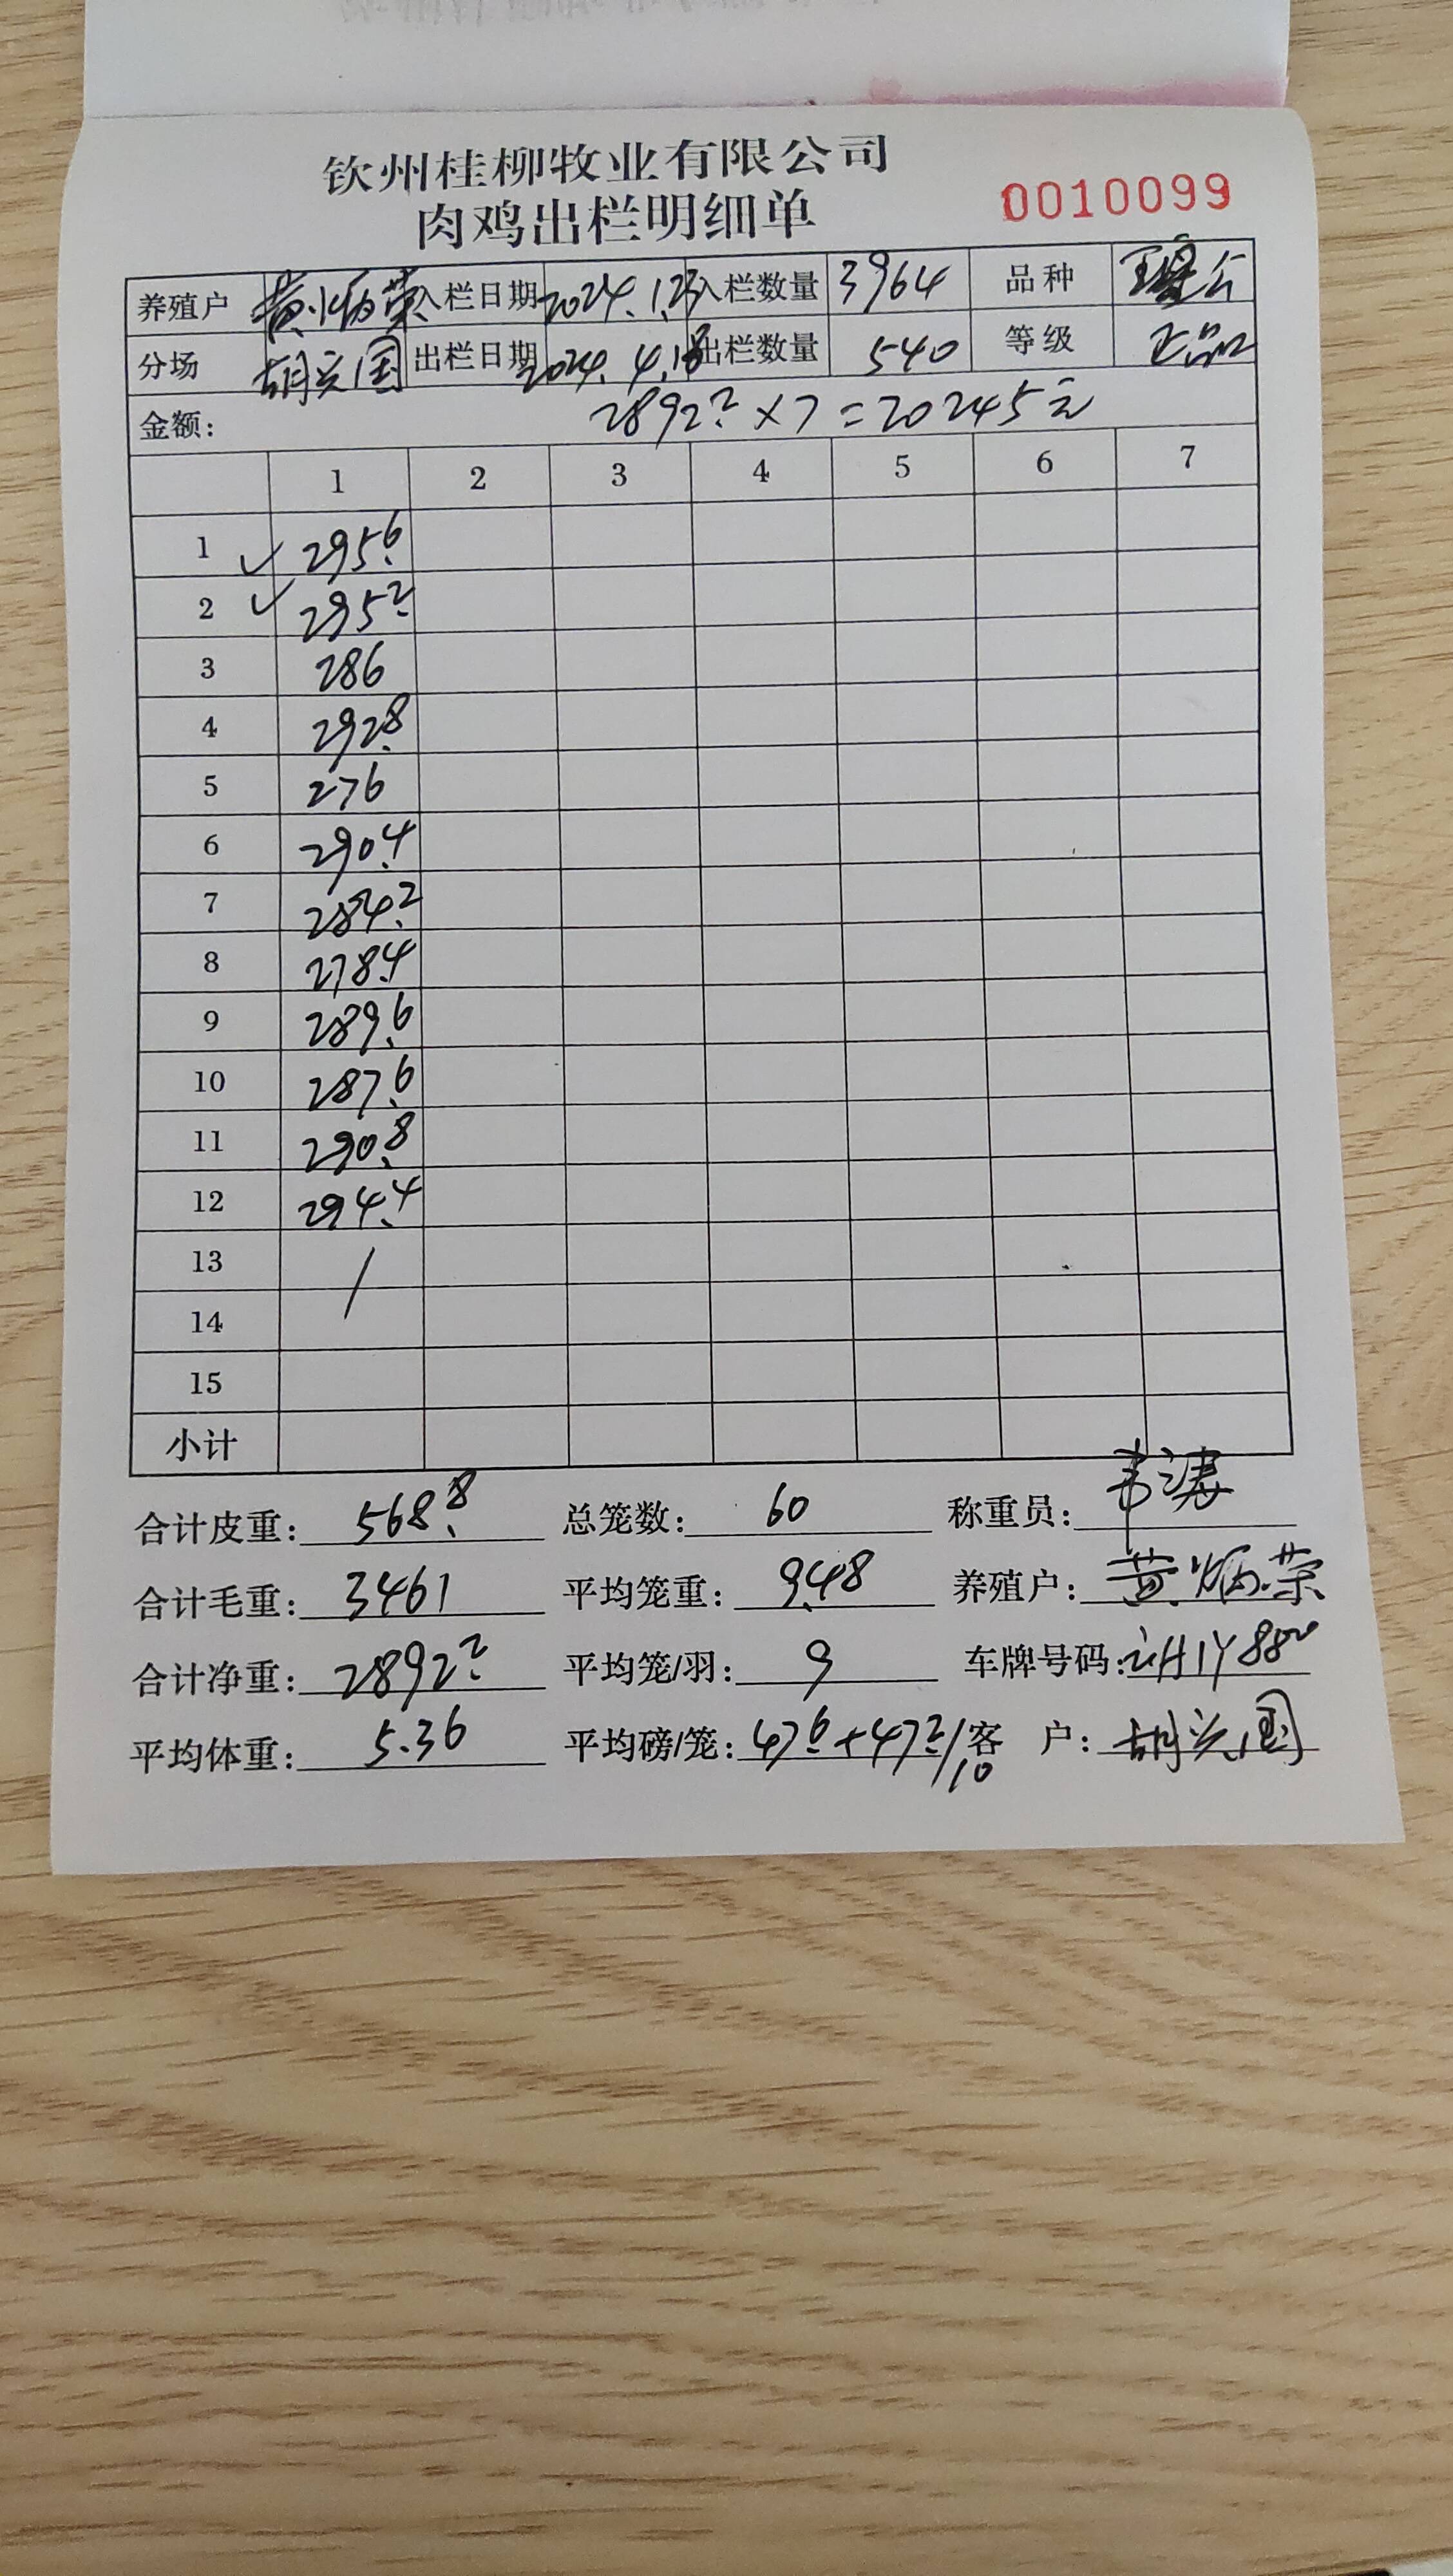 钦州桂柳牧业有限公司
肉鸡出栏明细单
0010099
养殖户 黄炳荣 入栏日期 2024.1.23 入栏数量 3964 品种
分场 胡兴国 出栏日期 2024.4.18 出栏数量 540 等级 正品
金额: 2892.2×7=20245元
1 2 3 4 5 6 7
1 ✓ 295.6
2 ✓ 295.2
3 286
4 292.8
5 276
6 290.4
7 284.2
8 278.4
9 289.6
10 287.6
11 290.8
12 294.4
13 /
14
15
小计
合计皮重: 568.8 总笼数: 60 称重员: 韦涛
合计毛重: 3461 平均笼重: 9.48 养殖户: 黄炳荣
合计净重: 2892.2 平均笼/羽: 9 车牌号码:
平均体重: 5.36 平均磅/笼: 47.6+47.2/10 客 户: 胡兴国